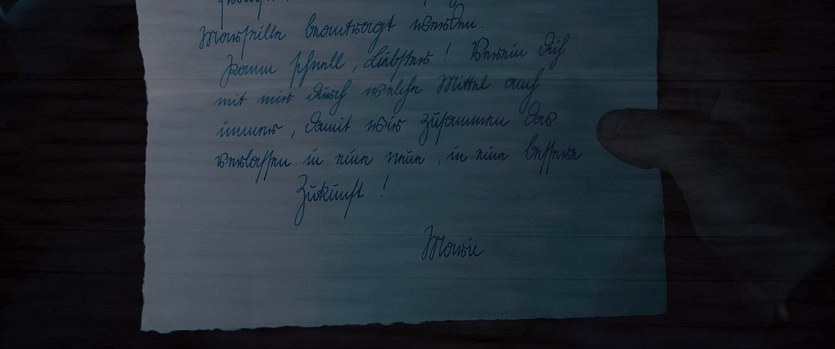 Marseille beantragt werden.
Komm schnell, Liebster! Verein dich
mit mir durch welche Mittel auch
immer, damit wir zusammen das
verlassen in eine neue, in eine bessere
Zukunft!
Marie